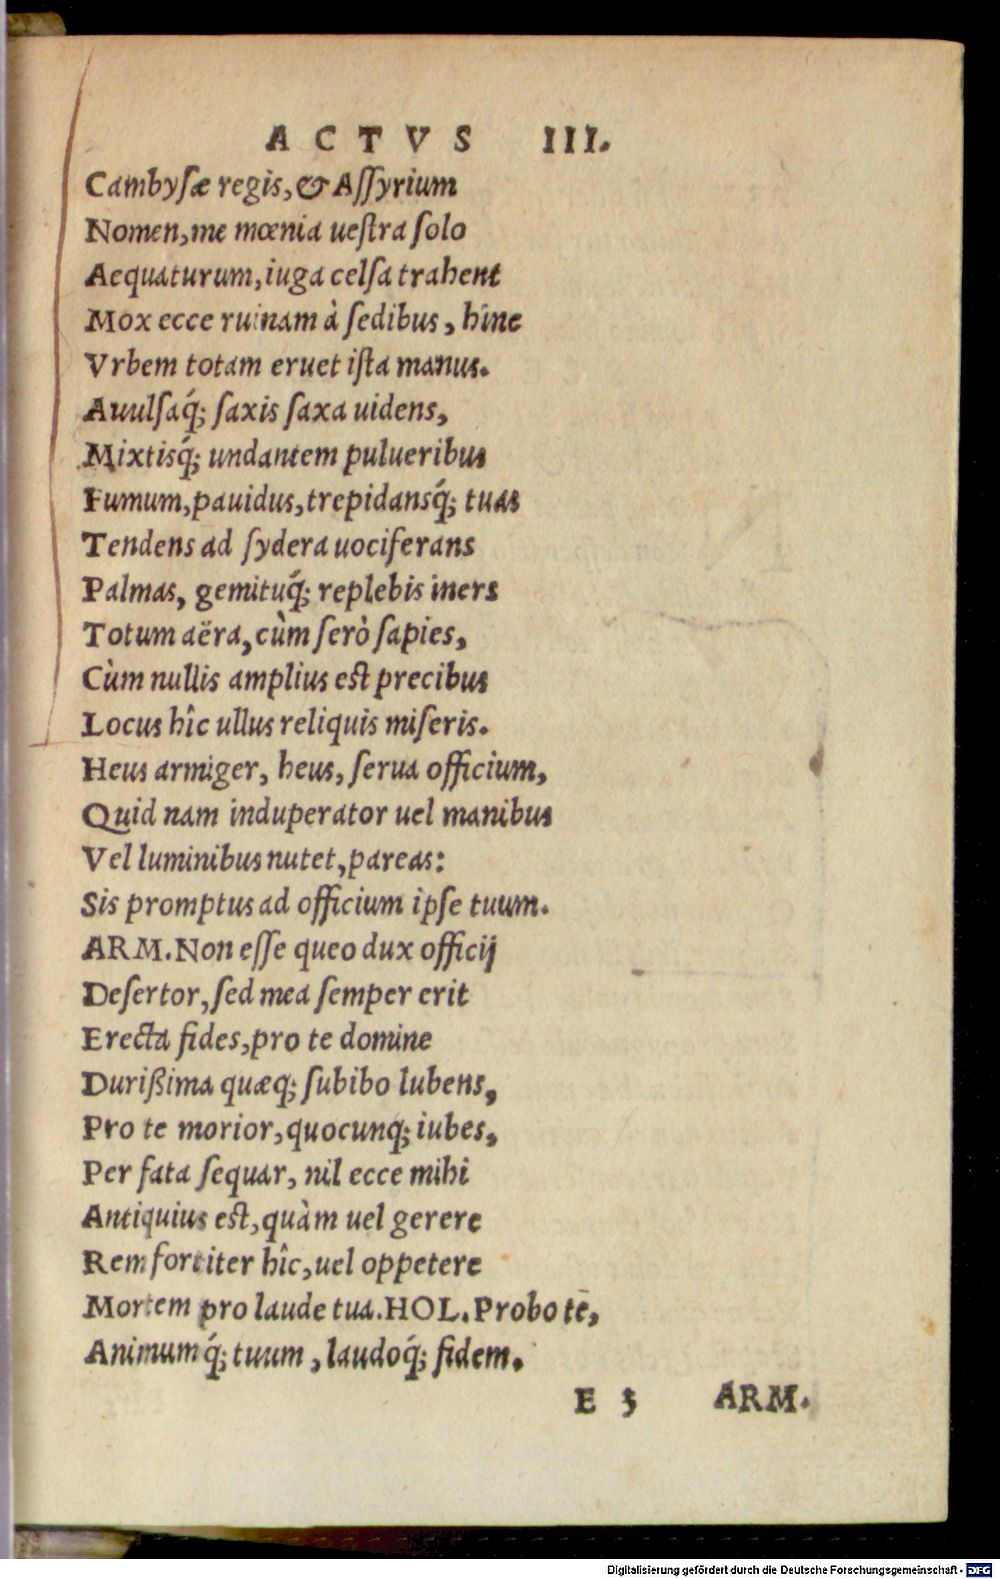 ACTVS III.
Cambyſæ regis, & Aſſyrium
Nomen, me mœnia ueſtra ſolo
Aequaturum, iuga celſa trahent
Mox ecce ruinam à ſedibus, hinc
Vrbem totam eruet iſta manus.
Auulſaq́; ſaxis ſaxa uidens,
Mixtisq́; undantem pulueribus
Fumum, pauidus, trepidansq́; tuas
Tendens ad ſydera uociferans
Palmas, gemituq́; replebis iners
Totum aëra, cùm ſerò ſapies,
Cùm nullis amplius eſt precibus
Locus hîc ullus reliquis miſeris.
Heus armiger, heus, ſerua officium,
Quid nam induperator uel manibus
Vel luminibus nutet, pareas:
Sis promptus ad officium ipſe tuum.
ARM. Non eſſe queo dux officij
Deſertor, ſed mea ſemper erit
Erecta fides, pro te domine
Durißima quæq; ſubibo lubens,
Pro te morior, quocunq; iubes,
Per fata ſequar, nil ecce mihi
Antiquius eſt, quàm uel gerere
Rem fortiter hîc, uel oppetere
Mortem pro laude tua. HOL. Probo te,
Animumq́; tuum, laudoq́; fidem.
E 3 ARM.
Digitalisierung gefördert durch die Deutsche Forschungsgemeinschaft - DFG